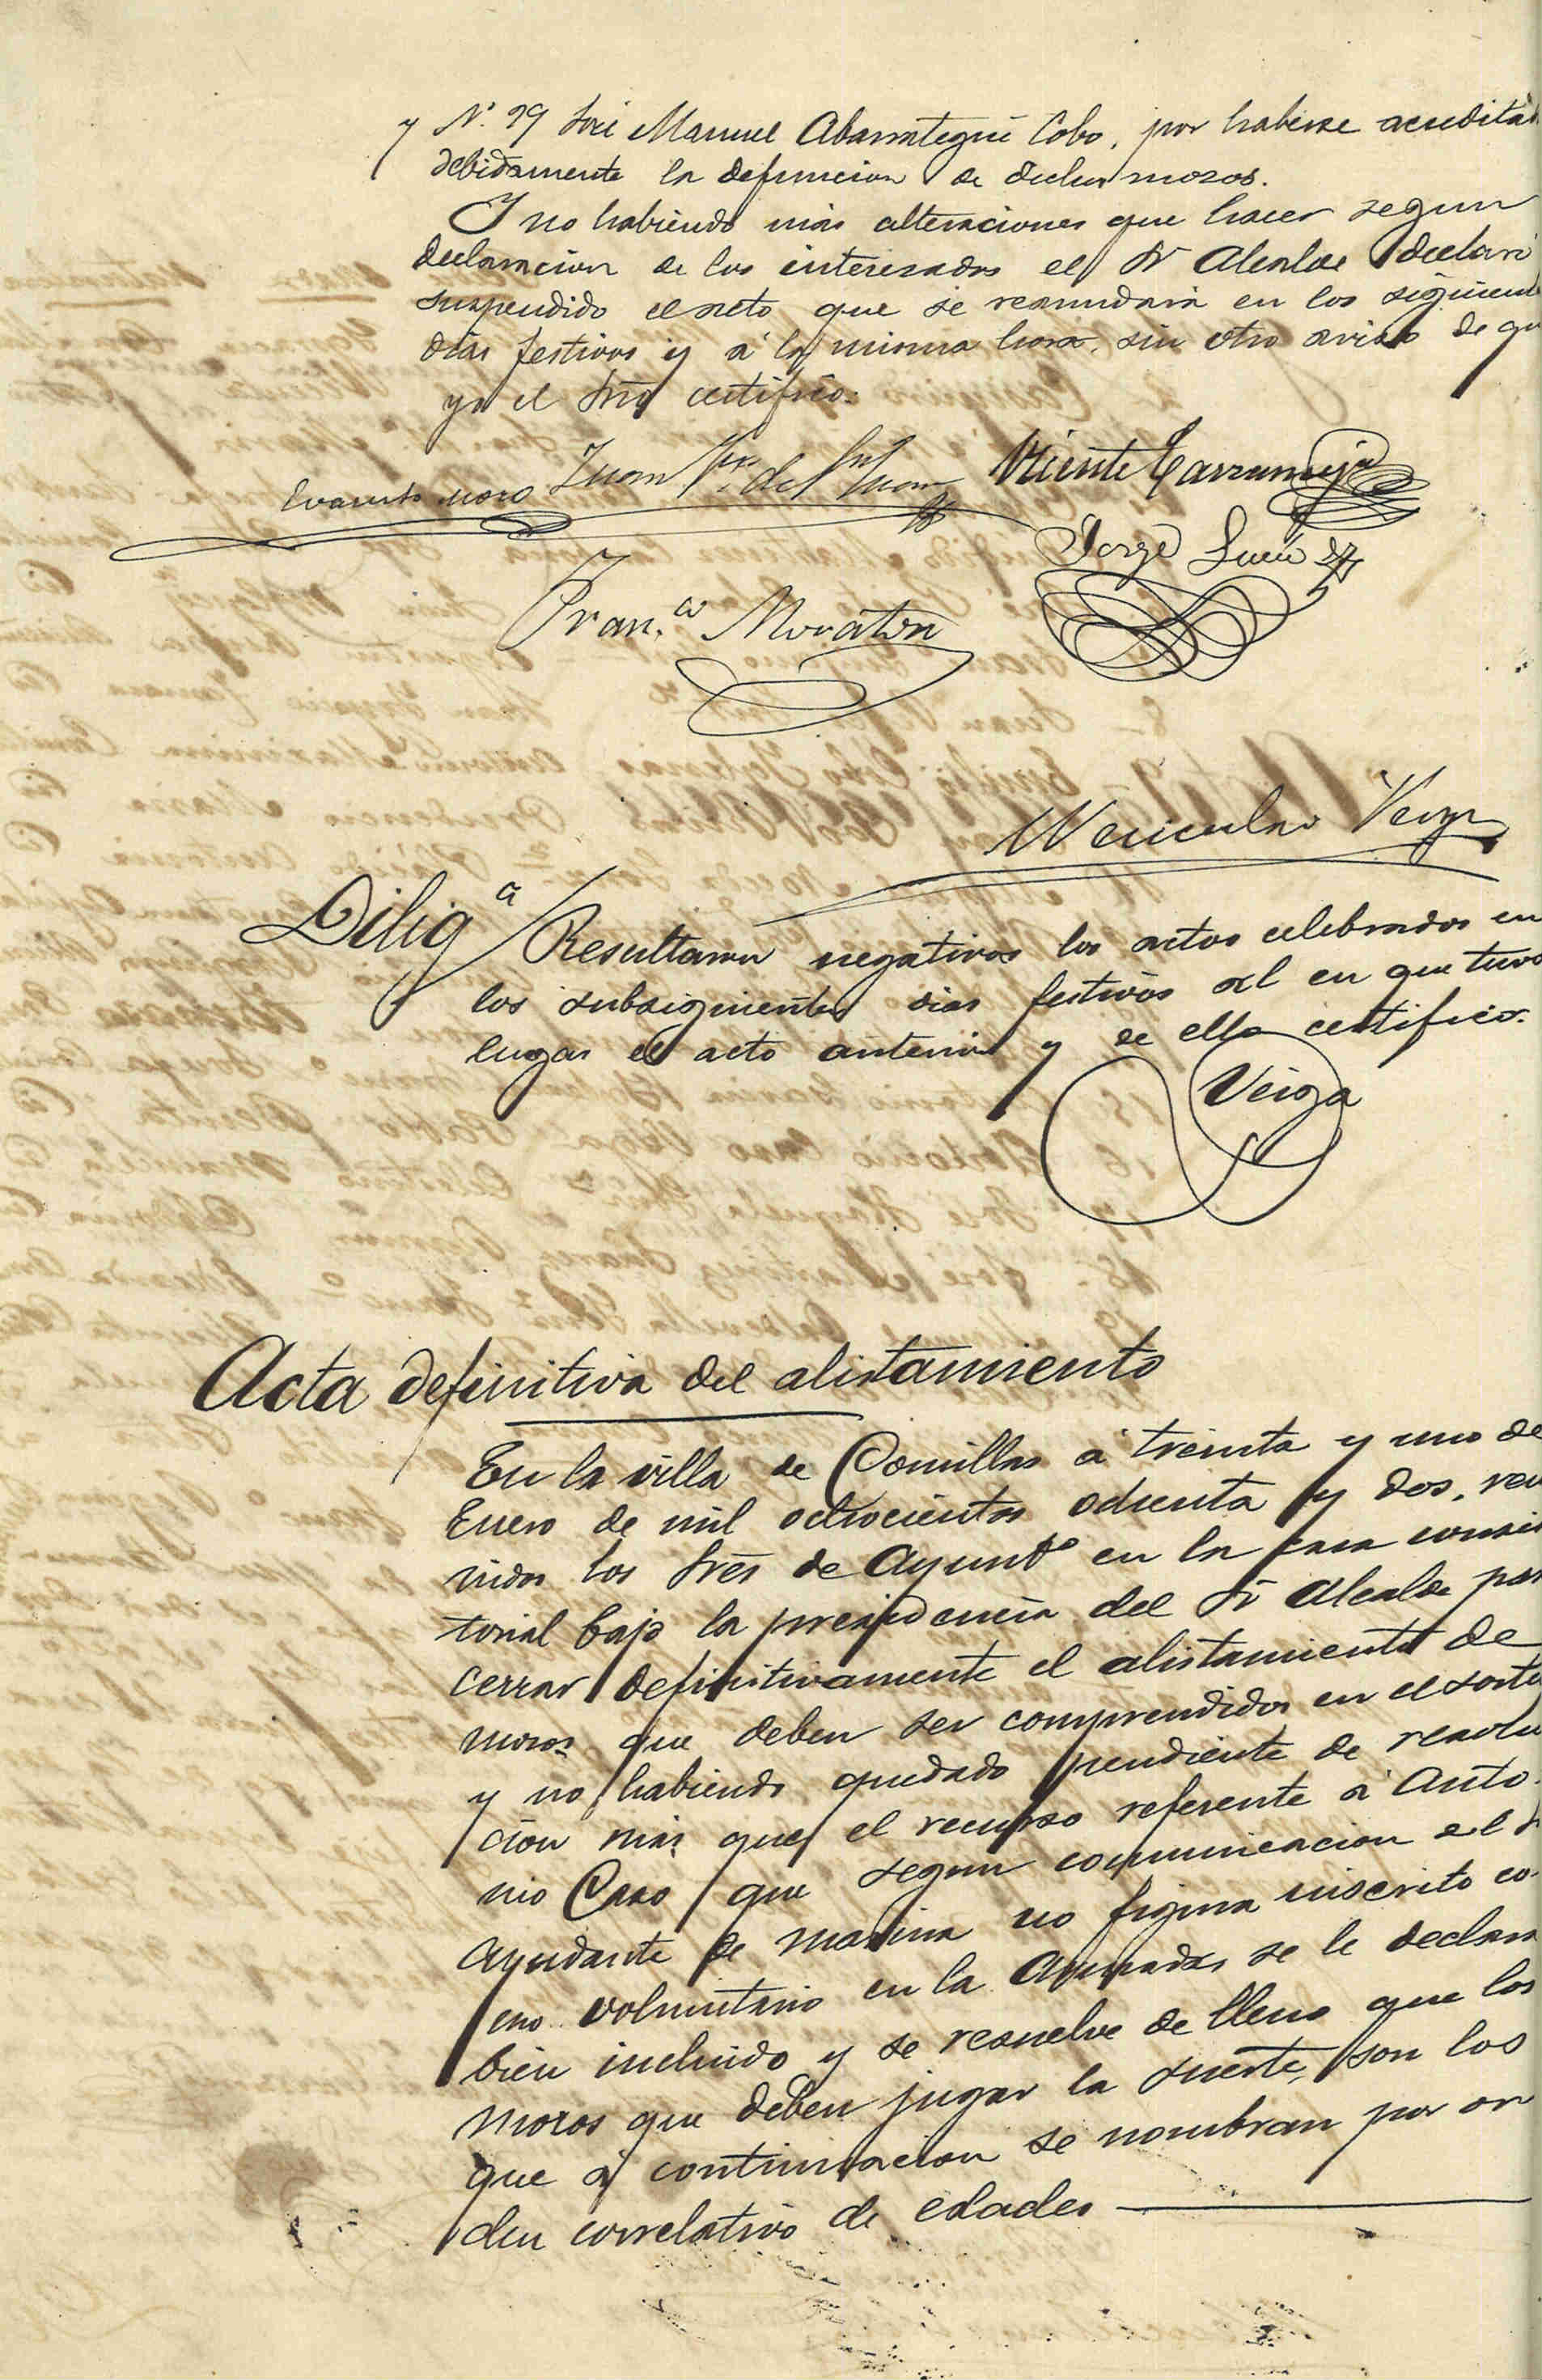 y N.º 29 José Manuel Abarrategui Cobo, por haberse acreditad
debidamente la defuncion de dichos mozos.
Y no habiendo más alteraciones que hacer segun
declaracion de los interesados el Sr Alcalde declaró
suspendido el acto que se reanudará en los siguient
dias festivos y á la misma hora, sin otro aviso de qu
yo el Srio certifico.
Evaristo Moro Juan Vicente Carranceja
Jorge
Fran.co Moraton
Wenceslao Veiga
Dilig.a Resultaron negativos los actos celebrados en
los subsiguientes dias festivos al en que tuvo
lugar el acto anterior y de ello certifico.
Veiga
Acta definitiva del alistamiento
En la villa de Comillas á treinta y uno de
Enero de mil ochocientos ochenta y dos, reu
nidos los Sres de Ayunto en la casa consis
torial bajo la presidencia del Sr Alcalde par
cerrar definitivamente el alistamiento de
mozos que deben ser comprendidos en el sorte
y no habiendo quedado pendiente de resolu
cion más que el recurso referente á Anto
nio Caso que segun comunicacion del S
Ayudante de Marina no figura inscrito co
mo voluntario en la Armada, se le declara
bien incluido y se resuelve de lleno que los
mozos que deben jugar la suerte, son los
que á continuacion se nombran por or
den correlativo de edades